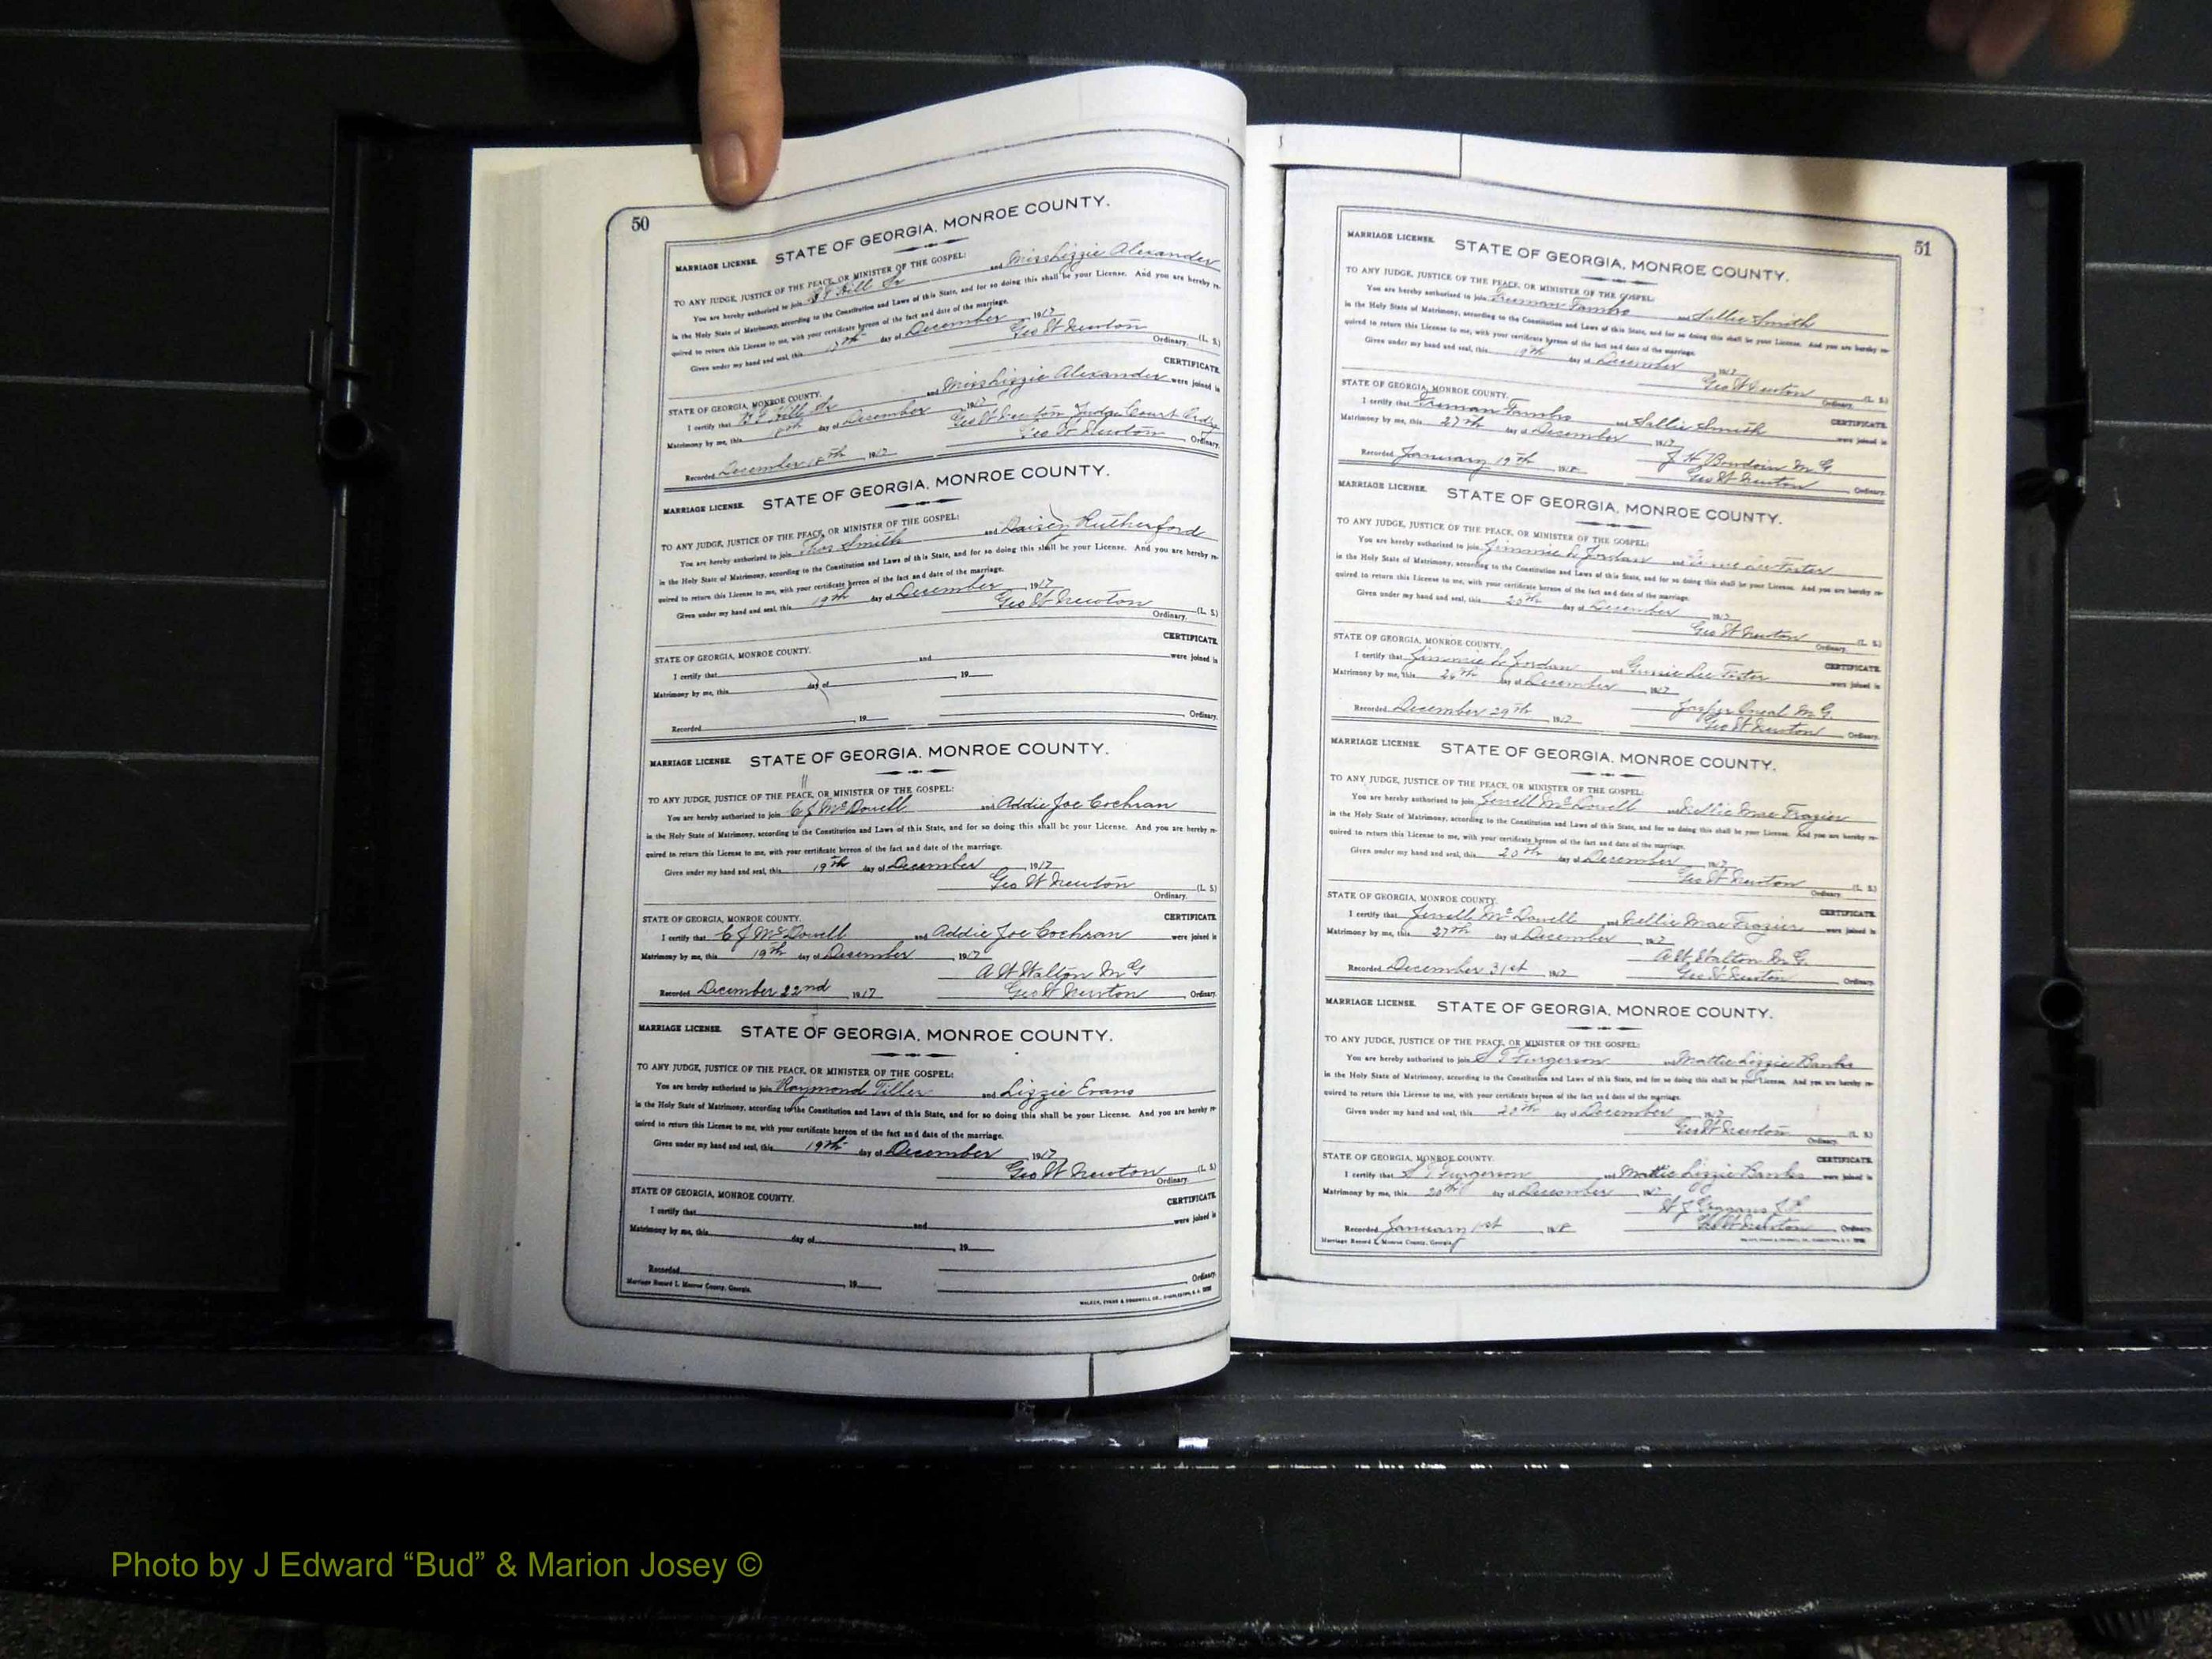 50
MARRIAGE LICENSE. STATE OF GEORGIA, MONROE COUNTY.
TO ANY JUDGE, JUSTICE OF THE PEACE, OR MINISTER OF THE GOSPEL:
You are hereby authorized to join Hill Sr and Miss Lizzie Alexander
in the Holy State of Matrimony, according to the Constitution and Laws of this State, and for so doing this shall be your License. And you are hereby re-
quired to return this License to me, with your certificate hereon of the fact and date of the marriage.
Given under my hand and seal, this day of December 1917
Geo W Newton (L. S.)
Ordinary.
CERTIFICATE.
STATE OF GEORGIA, MONROE COUNTY.
I certify that Hill Sr and Miss Lizzie Alexander were joined in
Matrimony by me, this day of December 1917
Geo W Newton Judge Court Ordy
Recorded December 18th 1917 Geo W Newton, Ordinary.
MARRIAGE LICENSE. STATE OF GEORGIA, MONROE COUNTY.
TO ANY JUDGE, JUSTICE OF THE PEACE, OR MINISTER OF THE GOSPEL:
You are hereby authorized to join Thos Smith and Rutherford
in the Holy State of Matrimony, according to the Constitution and Laws of this State, and for so doing this shall be your License. And you are hereby re-
quired to return this License to me, with your certificate hereon of the fact and date of the marriage.
Given under my hand and seal, this 19th day of December 1917
Geo W Newton (L. S.)
Ordinary.
CERTIFICATE.
STATE OF GEORGIA, MONROE COUNTY.
I certify that and were joined in
Matrimony by me, this day of , 19
Recorded , 19 Ordinary.
MARRIAGE LICENSE. STATE OF GEORGIA, MONROE COUNTY.
TO ANY JUDGE, JUSTICE OF THE PEACE, OR MINISTER OF THE GOSPEL:
You are hereby authorized to join C J McDowell and Addie Joe Cochran
in the Holy State of Matrimony, according to the Constitution and Laws of this State, and for so doing this shall be your License. And you are hereby re-
quired to return this License to me, with your certificate hereon of the fact and date of the marriage.
Given under my hand and seal, this 19th day of December , 1917
Geo W Newton (L. S.)
Ordinary.
STATE OF GEORGIA, MONROE COUNTY. CERTIFICATE.
I certify that C J McDowell and Addie Joe Cochran were joined in
Matrimony by me, this 19th day of December , 1917
A W Walton M G
Recorded December 22nd 1917 Geo W Newton , Ordinary.
MARRIAGE LICENSE. STATE OF GEORGIA, MONROE COUNTY.
TO ANY JUDGE, JUSTICE OF THE PEACE, OR MINISTER OF THE GOSPEL:
You are hereby authorized to join Raymond Tiller and Lizzie Evans
in the Holy State of Matrimony, according to the Constitution and Laws of this State, and for so doing this shall be your License. And you are hereby re-
quired to return this License to me, with your certificate hereon of the fact and date of the marriage.
Given under my hand and seal, this 19th day of December , 1917
Geo W Newton (L. S.)
Ordinary.
STATE OF GEORGIA, MONROE COUNTY. CERTIFICATE.
I certify that and were joined in
Matrimony by me, this day of , 19
Recorded , 19 Ordinary.
Marriage Record I, Monroe County, Georgia.
51
MARRIAGE LICENSE. STATE OF GEORGIA, MONROE COUNTY.
TO ANY JUDGE, JUSTICE OF THE PEACE, OR MINISTER OF THE GOSPEL:
You are hereby authorized to join and Sallie Smith
in the Holy State of Matrimony, according to the Constitution and Laws of this State, and for so doing this shall be your License. And you are hereby re-
quired to return this License to me, with your certificate hereon of the fact and date of the marriage.
Given under my hand and seal, this 19th day of December , 1917
Geo W Newton (L. S.)
Ordinary.
STATE OF GEORGIA, MONROE COUNTY. CERTIFICATE.
I certify that and Sallie Smith were joined in
Matrimony by me, this 27th day of December , 1917
J H Bowdoin M. G.
Recorded January 19th 1918 Geo W Newton , Ordinary.
MARRIAGE LICENSE. STATE OF GEORGIA, MONROE COUNTY.
TO ANY JUDGE, JUSTICE OF THE PEACE, OR MINISTER OF THE GOSPEL:
You are hereby authorized to join Jimmie L Jordan and Lee Foster
in the Holy State of Matrimony, according to the Constitution and Laws of this State, and for so doing this shall be your License. And you are hereby re-
quired to return this License to me, with your certificate hereon of the fact and date of the marriage.
Given under my hand and seal, this 20th day of December , 1917
Geo W Newton (L. S.)
Ordinary.
STATE OF GEORGIA, MONROE COUNTY. CERTIFICATE.
I certify that Jimmie L Jordan and Gussie Lee Foster were joined in
Matrimony by me, this day of December , 1917
Jasper Oneal M. G.
Recorded December 29th , 1917 Geo W Newton , Ordinary.
MARRIAGE LICENSE. STATE OF GEORGIA, MONROE COUNTY.
TO ANY JUDGE, JUSTICE OF THE PEACE, OR MINISTER OF THE GOSPEL:
You are hereby authorized to join Jewell McDowell and Nellie Mae Frazier
in the Holy State of Matrimony, according to the Constitution and Laws of this State, and for so doing this shall be your License. And you are hereby re-
quired to return this License to me, with your certificate hereon of the fact and date of the marriage.
Given under my hand and seal, this 20th day of December , 1917
Geo W Newton (L. S.)
Ordinary.
STATE OF GEORGIA, MONROE COUNTY. CERTIFICATE.
I certify that Jewell McDowell and Nellie Mae Frazier were joined in
Matrimony by me, this 27th day of December , 1917
A W Walton M. G.
Recorded December 31st , 1917 Geo W Newton , Ordinary.
MARRIAGE LICENSE. STATE OF GEORGIA, MONROE COUNTY.
TO ANY JUDGE, JUSTICE OF THE PEACE, OR MINISTER OF THE GOSPEL:
You are hereby authorized to join S T Furgerson and Mattie Lizzie Banks
in the Holy State of Matrimony, according to the Constitution and Laws of this State, and for so doing this shall be your License. And you are hereby re-
quired to return this License to me, with your certificate hereon of the fact and date of the marriage.
Given under my hand and seal, this 20th day of December , 1917
Geo W Newton (L. S.)
Ordinary.
STATE OF GEORGIA, MONROE COUNTY. CERTIFICATE.
I certify that S T Furgerson and Mattie Lizzie Banks were joined in
Matrimony by me, this 20th day of December
Recorded January 1st , 1918 Geo W Newton , Ordinary.
Marriage Record I, Monroe County, Georgia
Photo by J Edward “Bud” & Marion Josey ©